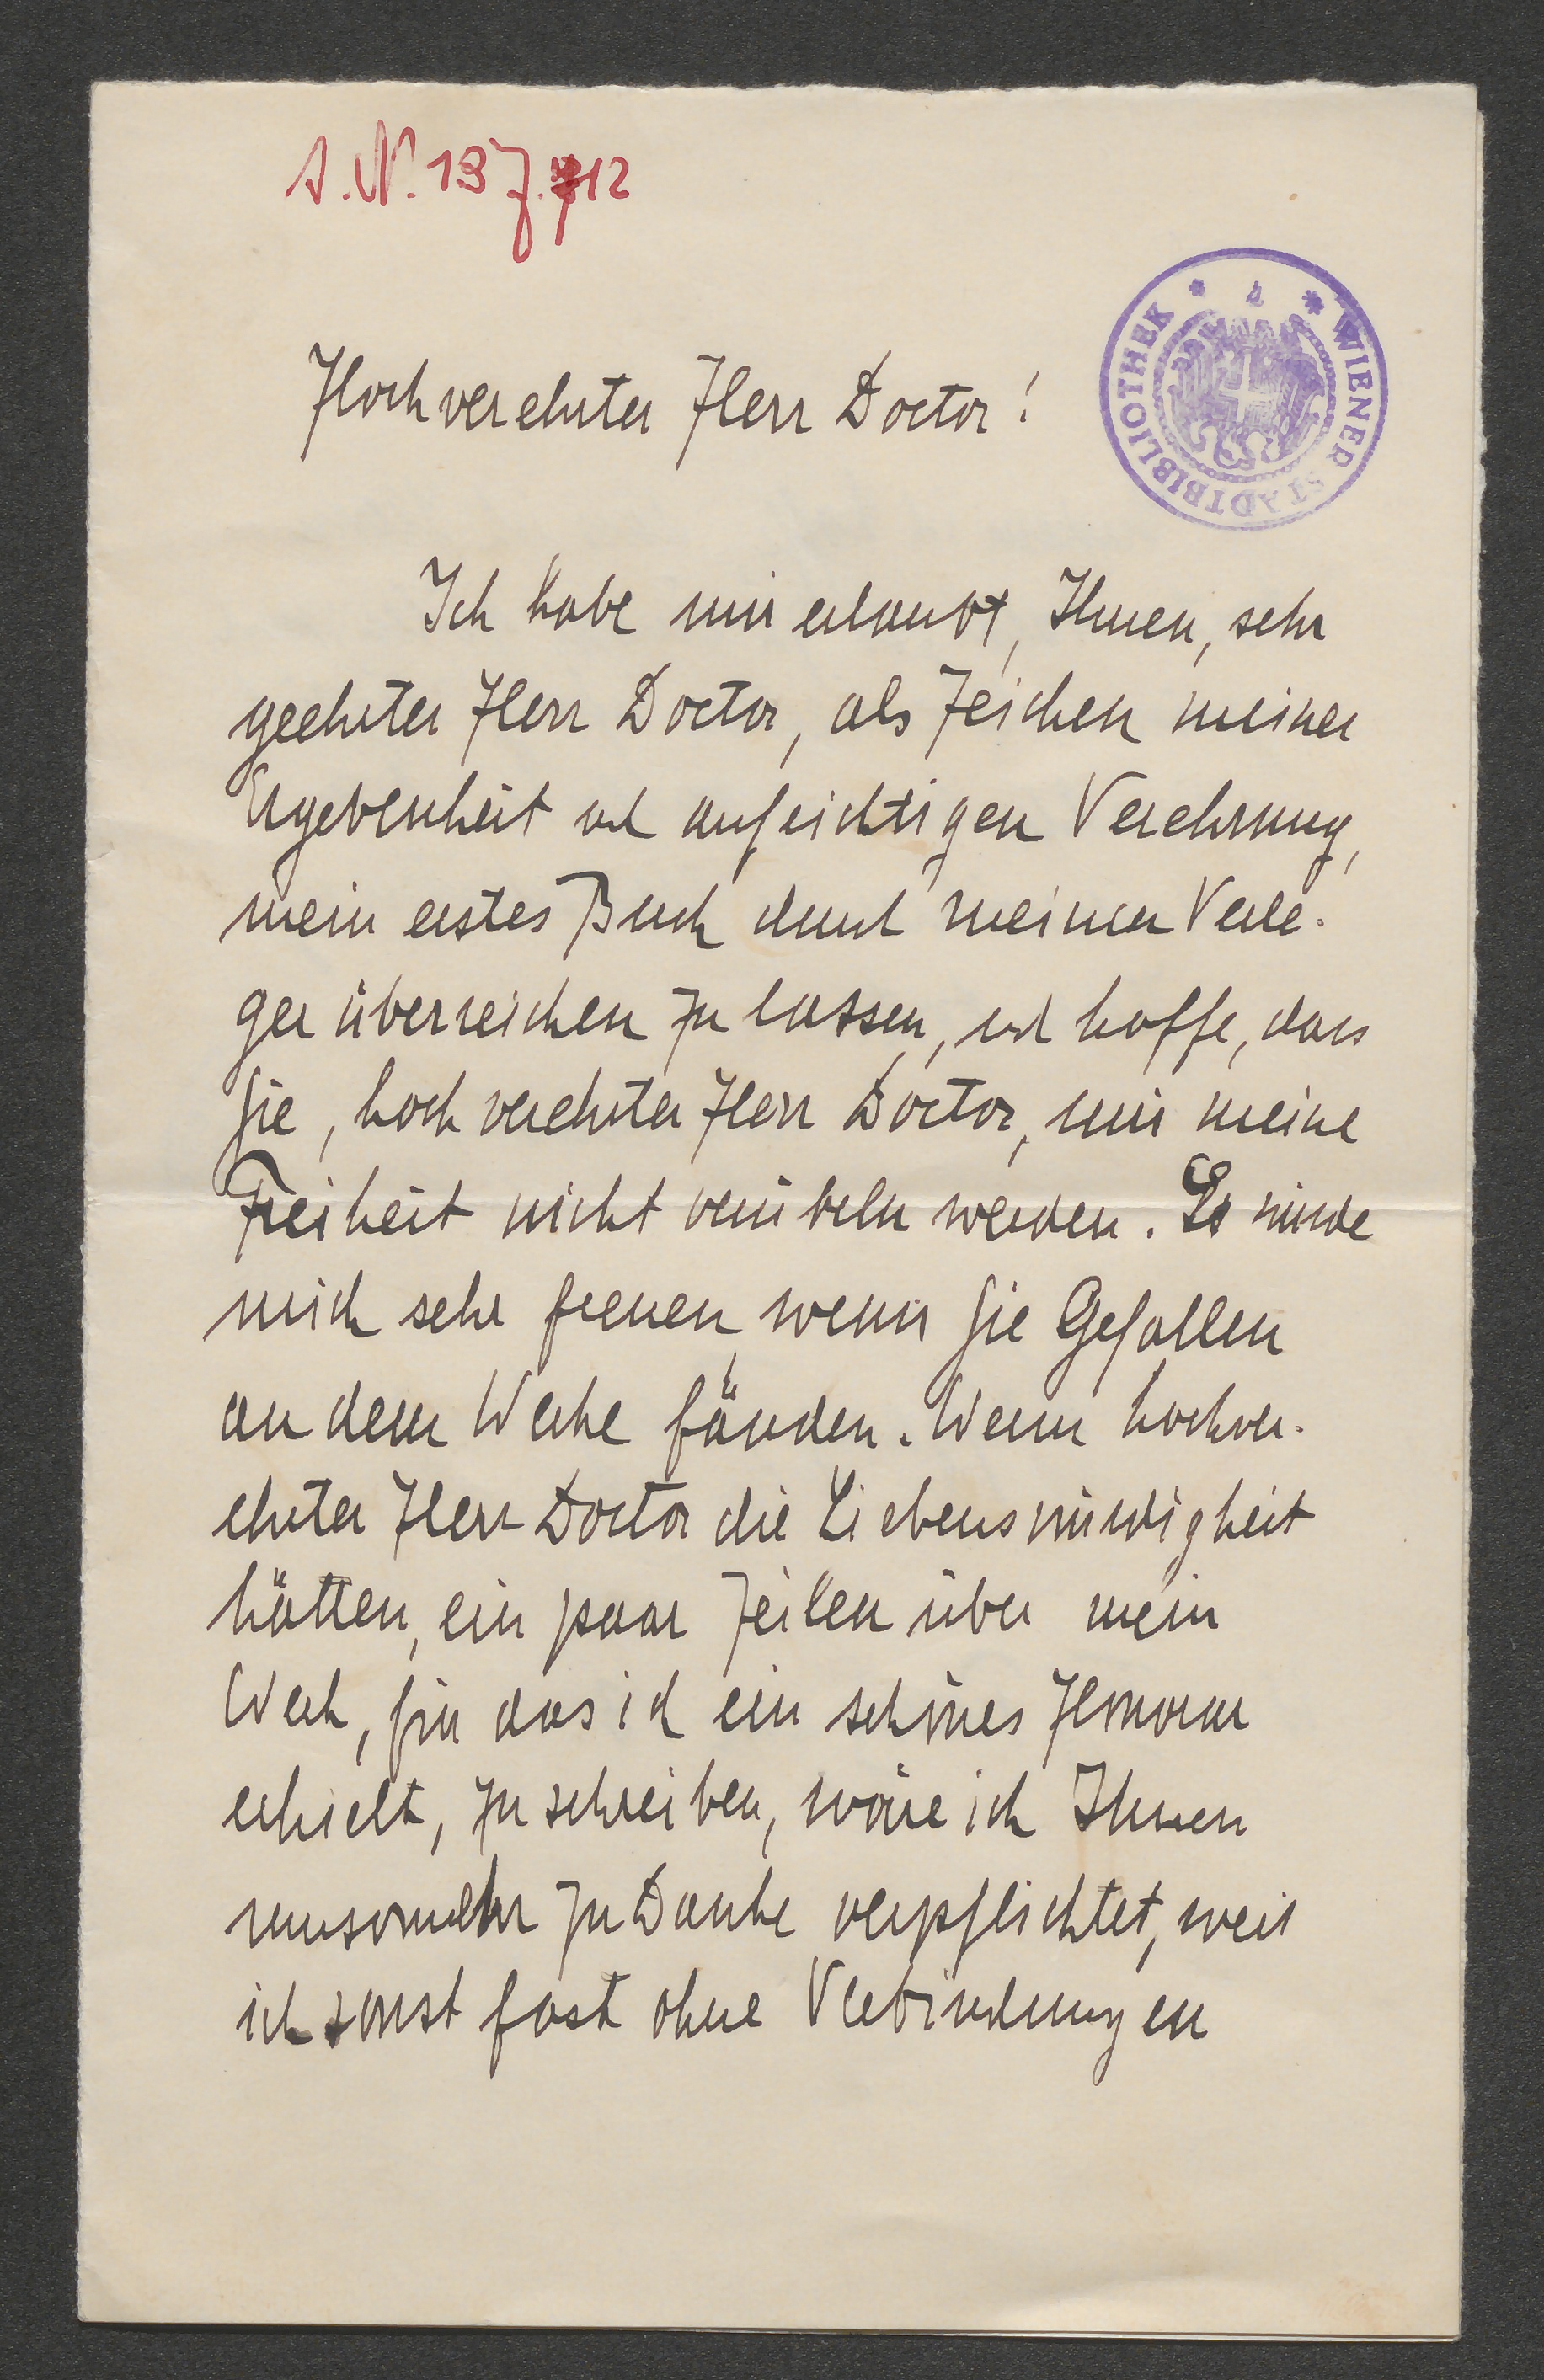 I.N. 137.712
WIENER STADTBIBLIOTHEK
Hochverehrter Herr Doctor!
Ich habe mir erlaubt, Ihnen, sehr
geehrter Herr Doctor, als Zeichen meiner
Ergebenheit und aufrichtigen Verehrung,
mein erstes Buch durch meinen Verle-
ger überreichen zu lassen, und hoffe, dass
Sie, hochverehrter Herr Doctor, mir meine
Freiheit nicht verübeln werden. Es würde
mich sehr freuen, wenn Sie Gefallen
an dem Werke fänden. Wenn hochver-
ehrter Herr Doctor die Liebenswürdigkeit
hätten, ein paar Zeilen über mein
Werk, für das ich ein schönes Honorar
erhielt, zu schreiben, wäre ich Ihnen
umsomehr zu Danke verpflichtet, weil
ich sonst fast ohne Verbindungen